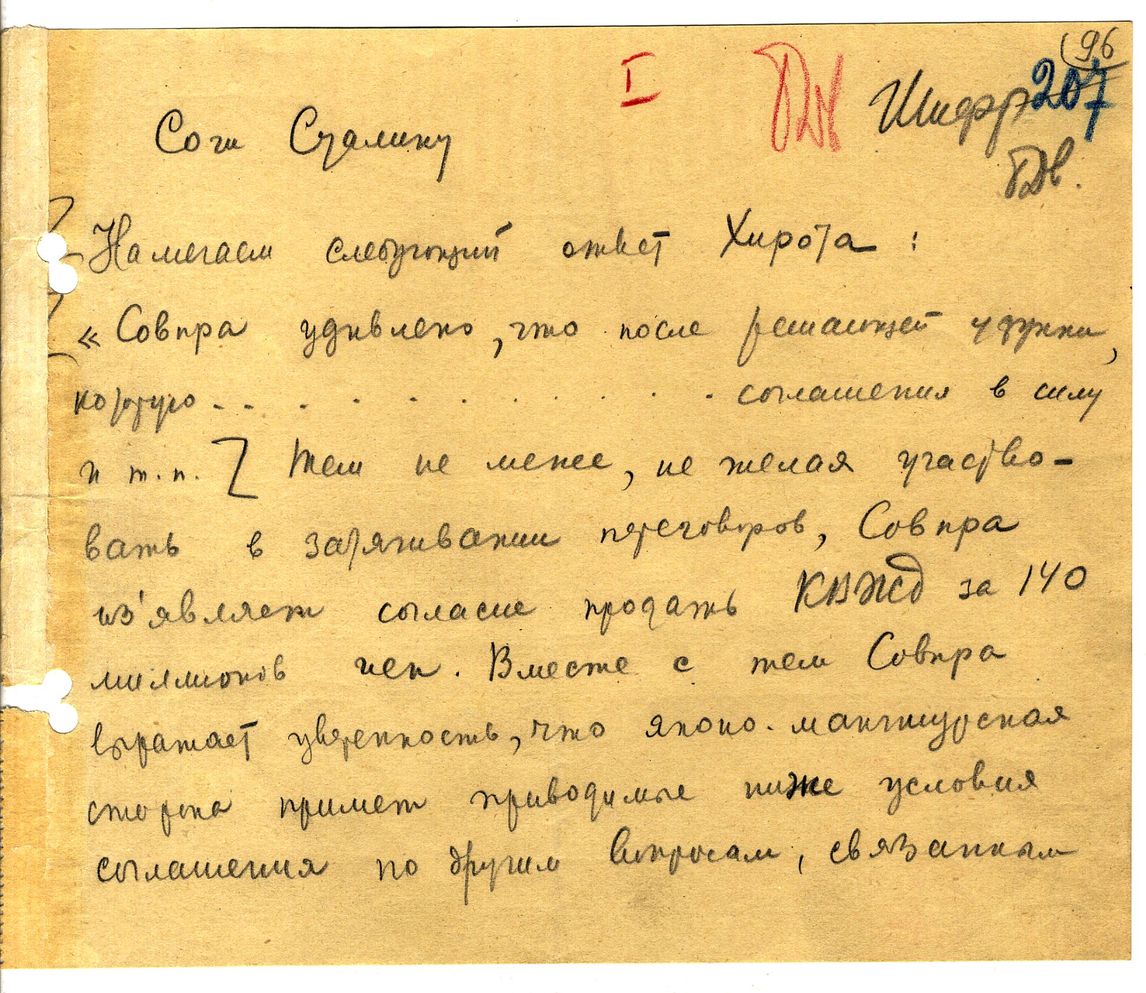 96
I
ПК
Шифр 207
Сочи Сталину
Намечаем следующий ответ Хирота:
«Совпра удивлено, что после решающей уступки,
которую . . . . . . . . . . . соглашения в силу
и т.п. Тем не менее, не желая участво-
вать в затягивании переговоров, Совпра
из'являет согласие продать КВЖД за 140
миллионов иен. Вместе с тем Совпра
выражает уверенность, что японо-манчжурская
сторона примет приводимые ниже условия
соглашения по другим вопросам, связанным